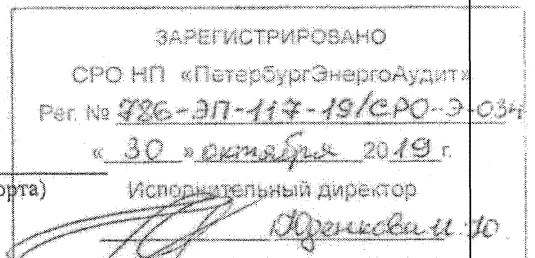 ЗАРЕГИСТРИРОВАНО
СРО НП «ПетербургЭнергоАудит»
Рег. № 786-ЭП-117-19/СРО-Э-034
« 30 » октября 2019 г.
орта)
Исполнительный директор
И. Ю.